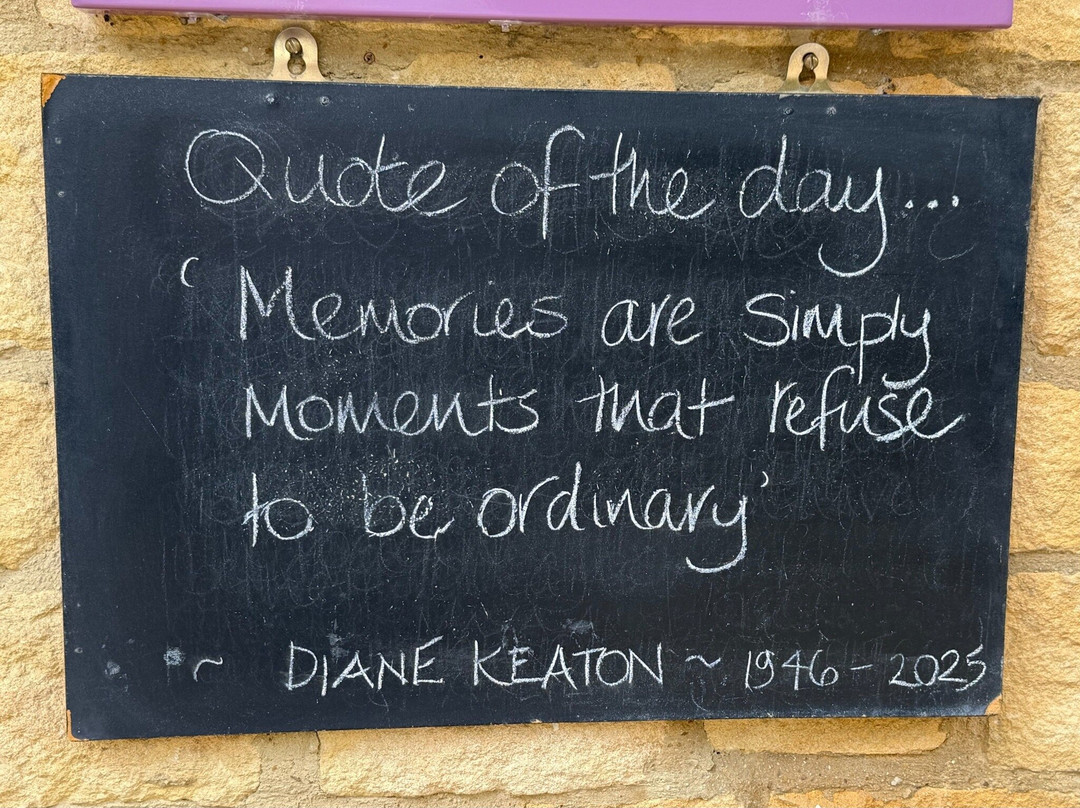 Quote of the day...
'Memories are simply
Moments that refuse
to be ordinary'
~ DIANE KEATON ~ 1946 - 2025